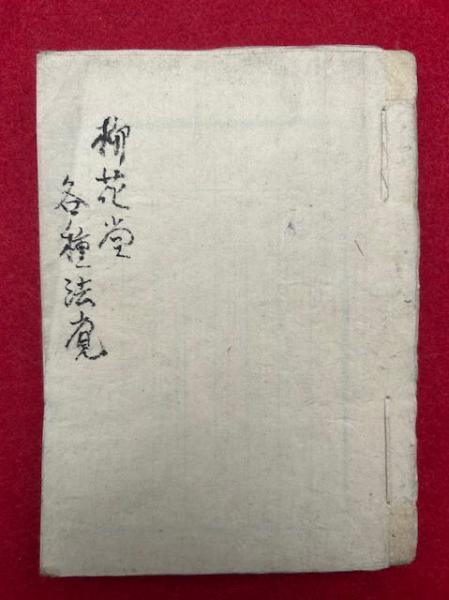 柳花堂
各種法覚